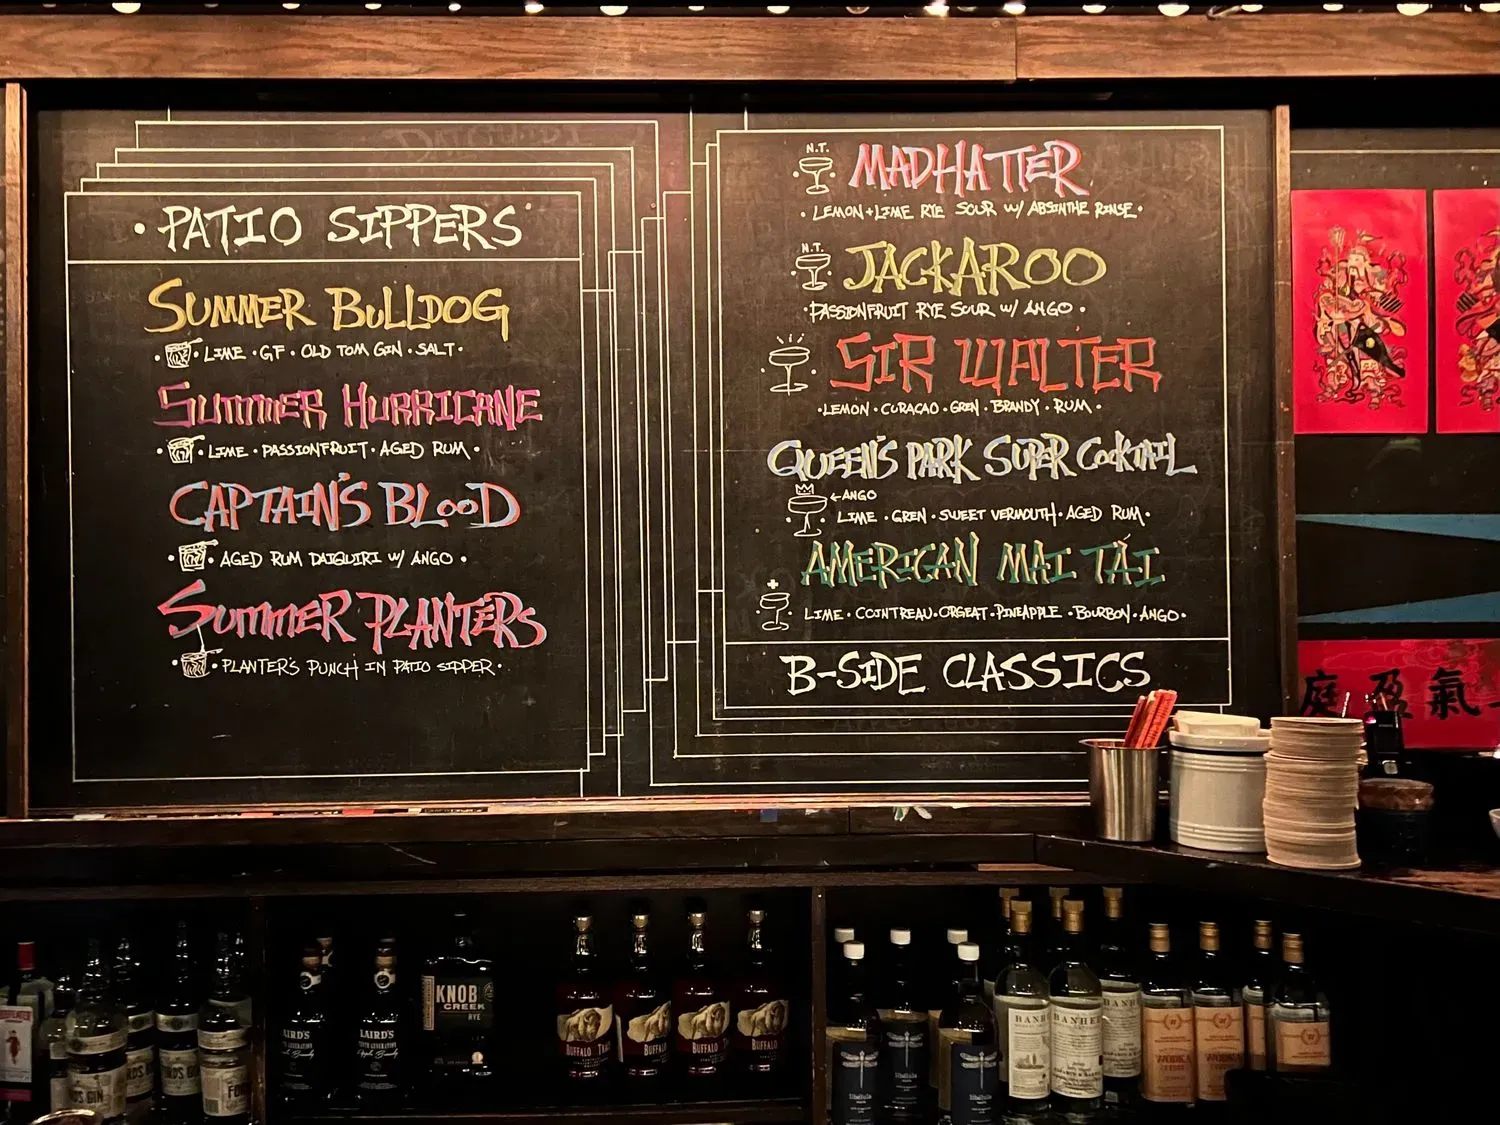 • PATIO SIPPERS •
SUMMER BULLDOG
• LIME • GF • OLD TOM GIN • SALT •
SUMMER HURRICANE
• LIME • PASSIONFRUIT • AGED RUM •
CAPTAIN'S BLOOD
• AGED RUM DAIQUIRI W/ ANGO •
SUMMER PLANTERS
• PLANTER'S PUNCH IN PATIO SIPPER •
N.T.
MADHATTER
• LEMON + LIME RYE SOUR W/ ABSINTHE RINSE •
N.T.
JACKAROO
• PASSIONFRUIT RYE SOUR W/ ANGO •
SIR WALTER
• LEMON • CURACAO • GREN • BRANDY • RUM •
QUEEN'S PARK SUPER COCKTAIL
← ANGO
LIME • GREN • SWEET VERMOUTH • AGED RUM •
AMERICAN MAI TAI
LIME • COINTREAU • ORGEAT • PINEAPPLE • BOURBON • ANGO •
B-SIDE CLASSICS
庭 盈 氣
KNOB
CREEK
RYE
LAIRD'S
Apple Brandy
LAIRD'S
Apple Brandy
BUFFALO TRACE
BUFFALO
BUFFALO
BUFFALO
libélula
libélula
libélula
BANHEZ
VODKA
VODKA
GIN